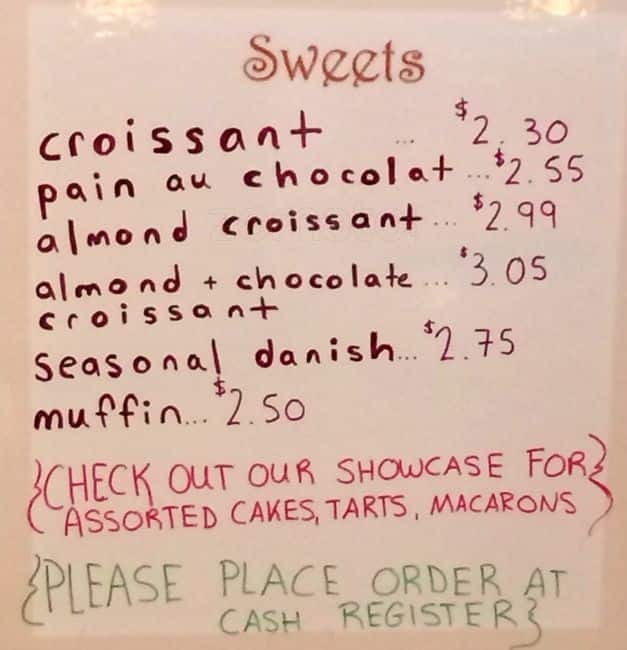 Sweets
croissant ... $2.30
pain au chocolat ... $2.55
almond croissant ... $2.99
almond + chocolate ... $3.05
croissant
seasonal danish... $2.75
muffin... $2.50
{CHECK OUT OUR SHOWCASE FOR
ASSORTED CAKES, TARTS, MACARONS}
{PLEASE PLACE ORDER AT
CASH REGISTER}